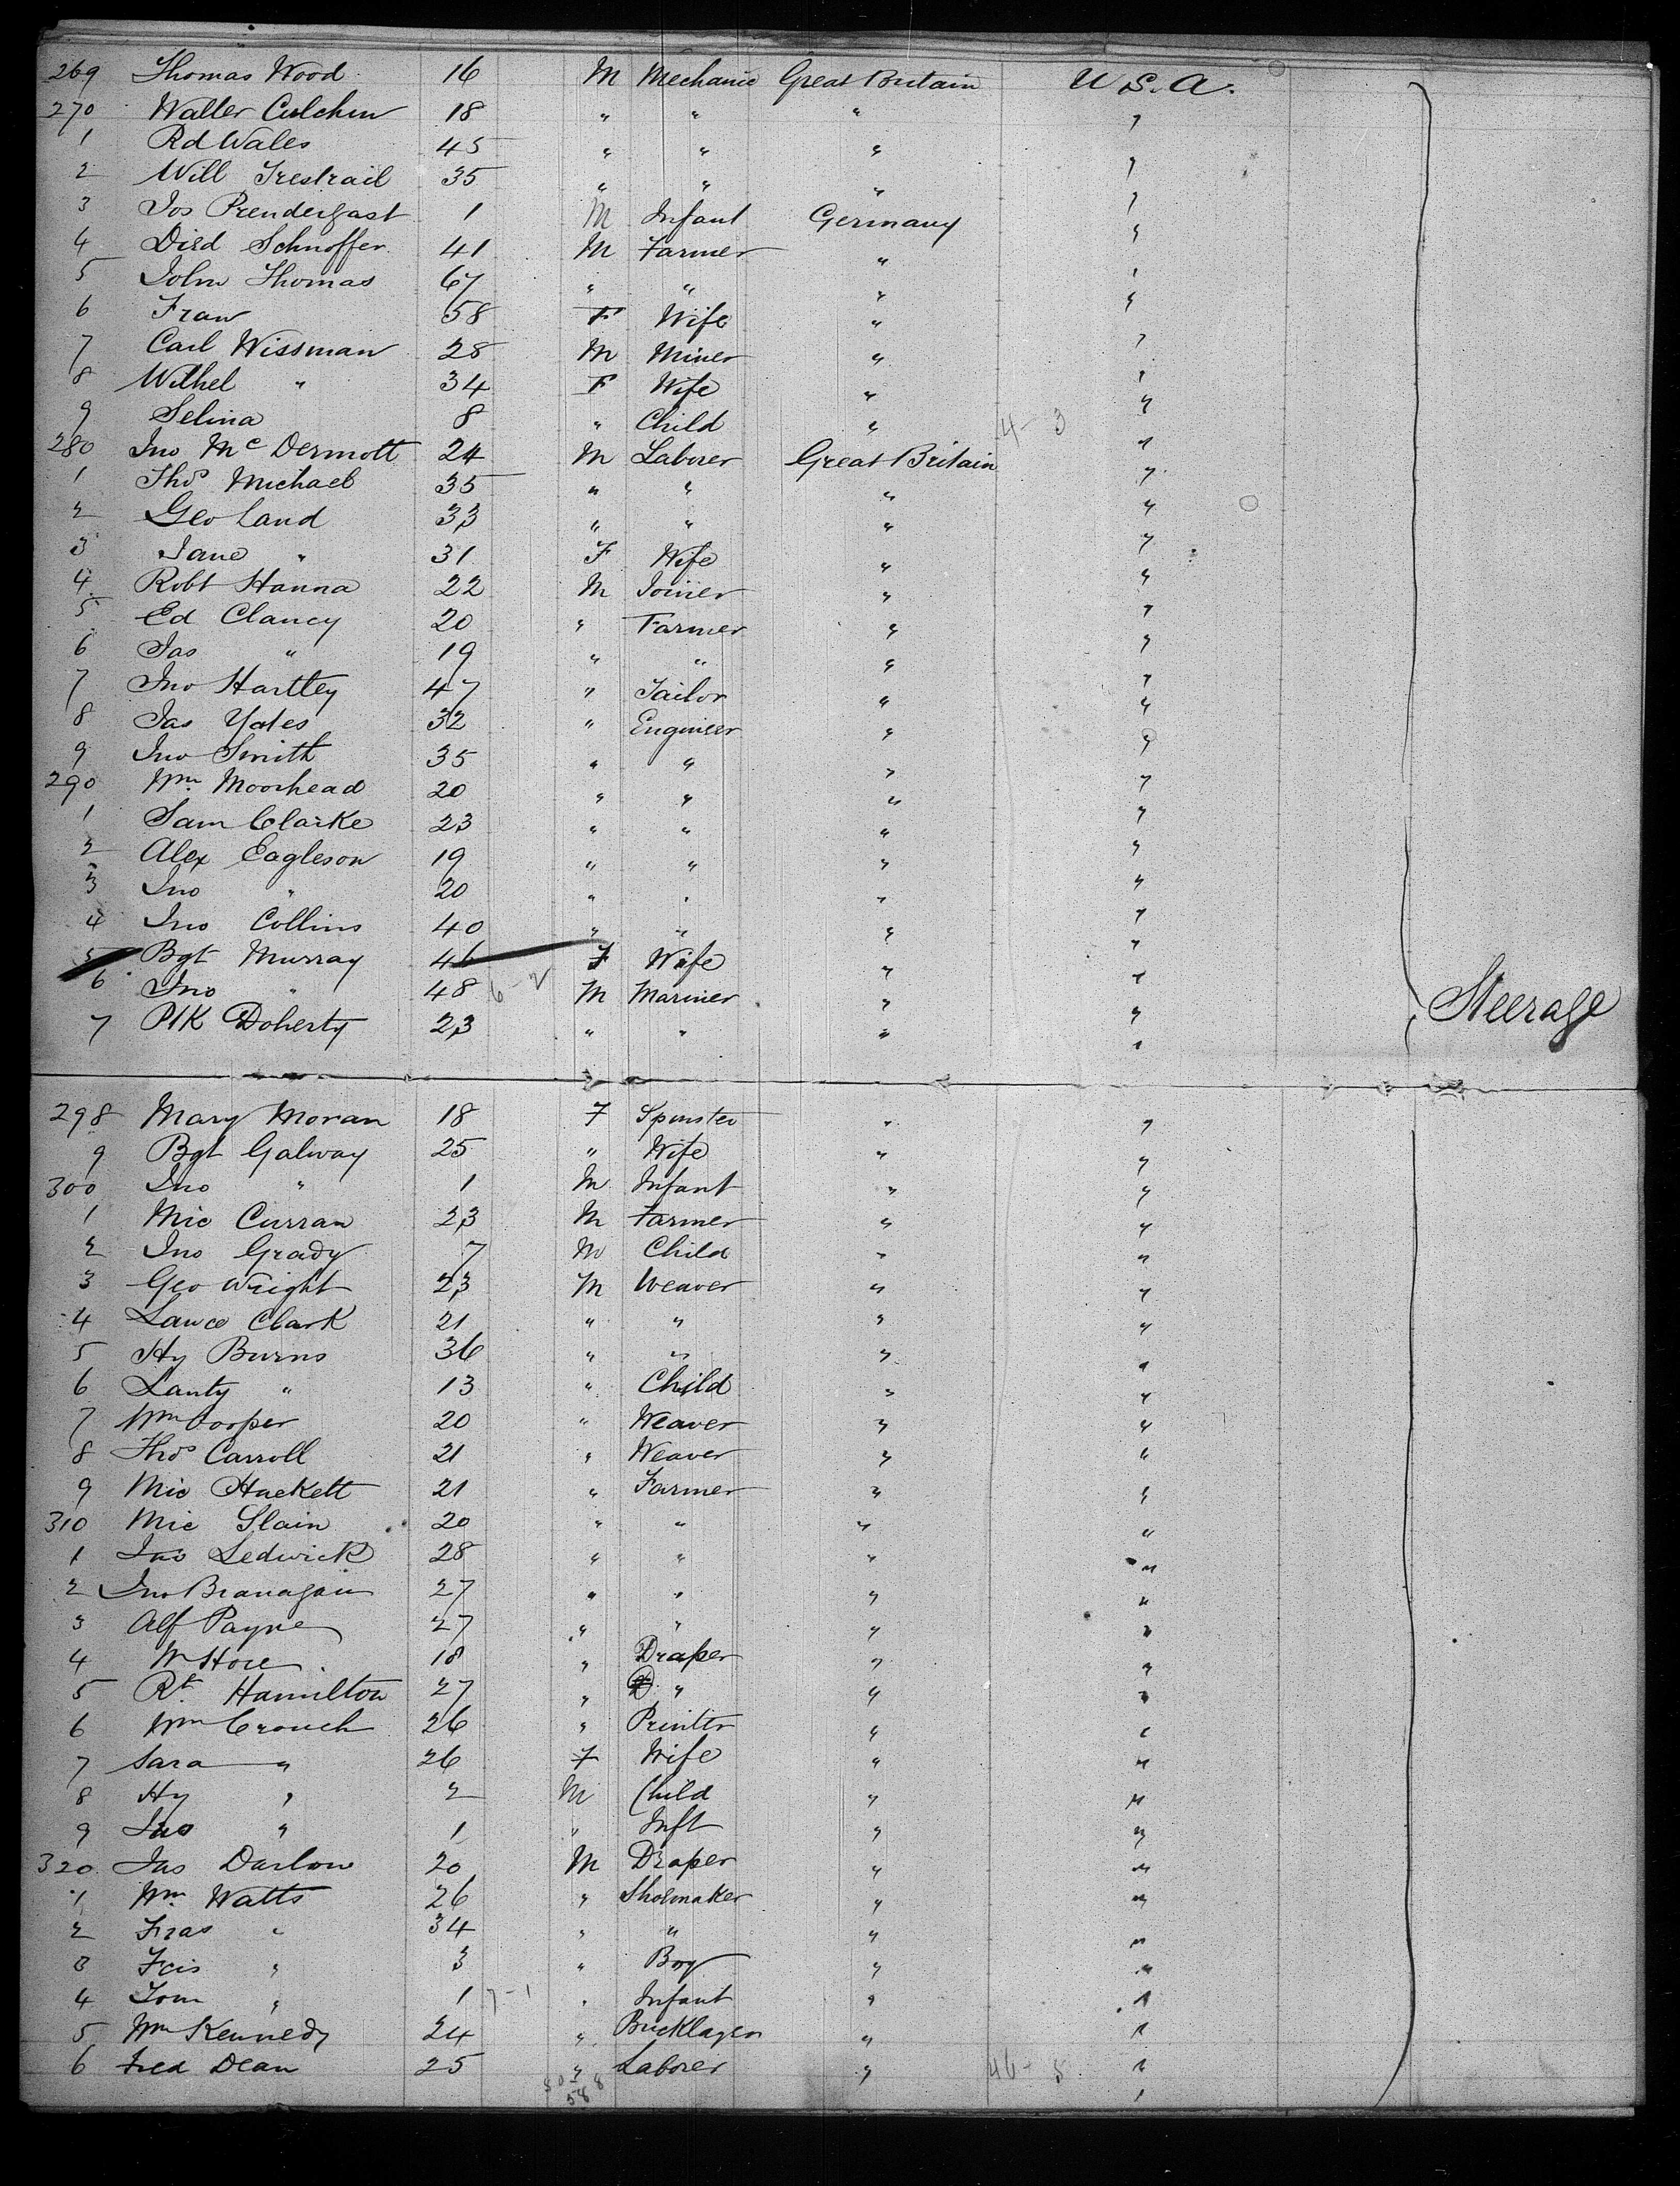 269 Thomas Wood 16 M Mechanic Great Britain U.S.A.
270 Walter Culchin 18 " " " "
1 Rd Wales 45 " " " "
2 Will Trestrail 35 " " " "
3 Jos Prendergast 1 M Infant Germany "
4 Died Schnoffer 41 M Farmer " "
5 John Thomas 67 " " " "
6 Frau 58 F Wife " "
7 Carl Wissman 28 M Miner " "
8 Wilhel " 34 F Wife " "
9 Selina 8 " Child " 4-3 "
280 Jno McDermott 24 M Laborer Great Britain "
1 Thos Michael 35 " " " "
2 Geo Land 33 " " " "
3 Jane " 31 F Wife " "
4 Robt Hanna 22 M Joiner " "
5 Ed Clancy 20 " Farmer " "
6 Jas " 19 " " " "
7 Jno Hartley 47 " Tailor " "
8 Jas Yates 32 " Engineer " "
9 Jno Smith 35 " " " "
290 Wm Moorhead 20 " " " "
1 Sam Clarke 23 " " " "
2 Alex Eagleson 19 " " " "
3 Jno " 20 " " " "
4 Jno Collins 40 " " " "
5 Bgt Murray 46 F Wife " "
6 Jno " 48 6-2 M Mariner " "
7 Ptk Doherty 23 " " " " Steerage
298 Mary Moran 18 F Spinster " "
9 Bgt Galway 25 " Wife " "
300 Jno " 1 M Infant " "
1 Mic Curran 23 M Farmer " "
2 Jno Grady 7 M Child " "
3 Geo Wright 23 M Weaver " "
4 Lawce Clark 21 " " " "
5 Hy Burns 36 " " " "
6 Lanty " 13 " Child " "
7 Wm Cooper 20 " Weaver " "
8 Thos Carroll 21 " Weaver " "
9 Mic Hackett 21 " Farmer " "
310 Mic Slain 20 " " " "
1 Jno Ledwick 28 " " " "
2 Jno Branagan 27 " " " "
3 Alf Payne 27 " " " "
4 W Hore 18 " Draper " "
5 Rt Hamilton 27 " " " "
6 Wm Crouch 26 " Printer " "
7 Sara " 26 F Wife " "
8 Hy " 2 M Child " "
9 Jno " 1 " Inft " "
320 Jas Darlow 20 M Draper " "
1 Wm Watts 26 " Shoemaker " "
2 Fras " 34 " " " "
3 Fcis " 3 " Boy " "
4 Tom " 1 7-1 " Infant " "
5 Wm Kennedy 24 " Bricklayer " "
6 Fred Dean 25 " Laborer " 46-5 "
588